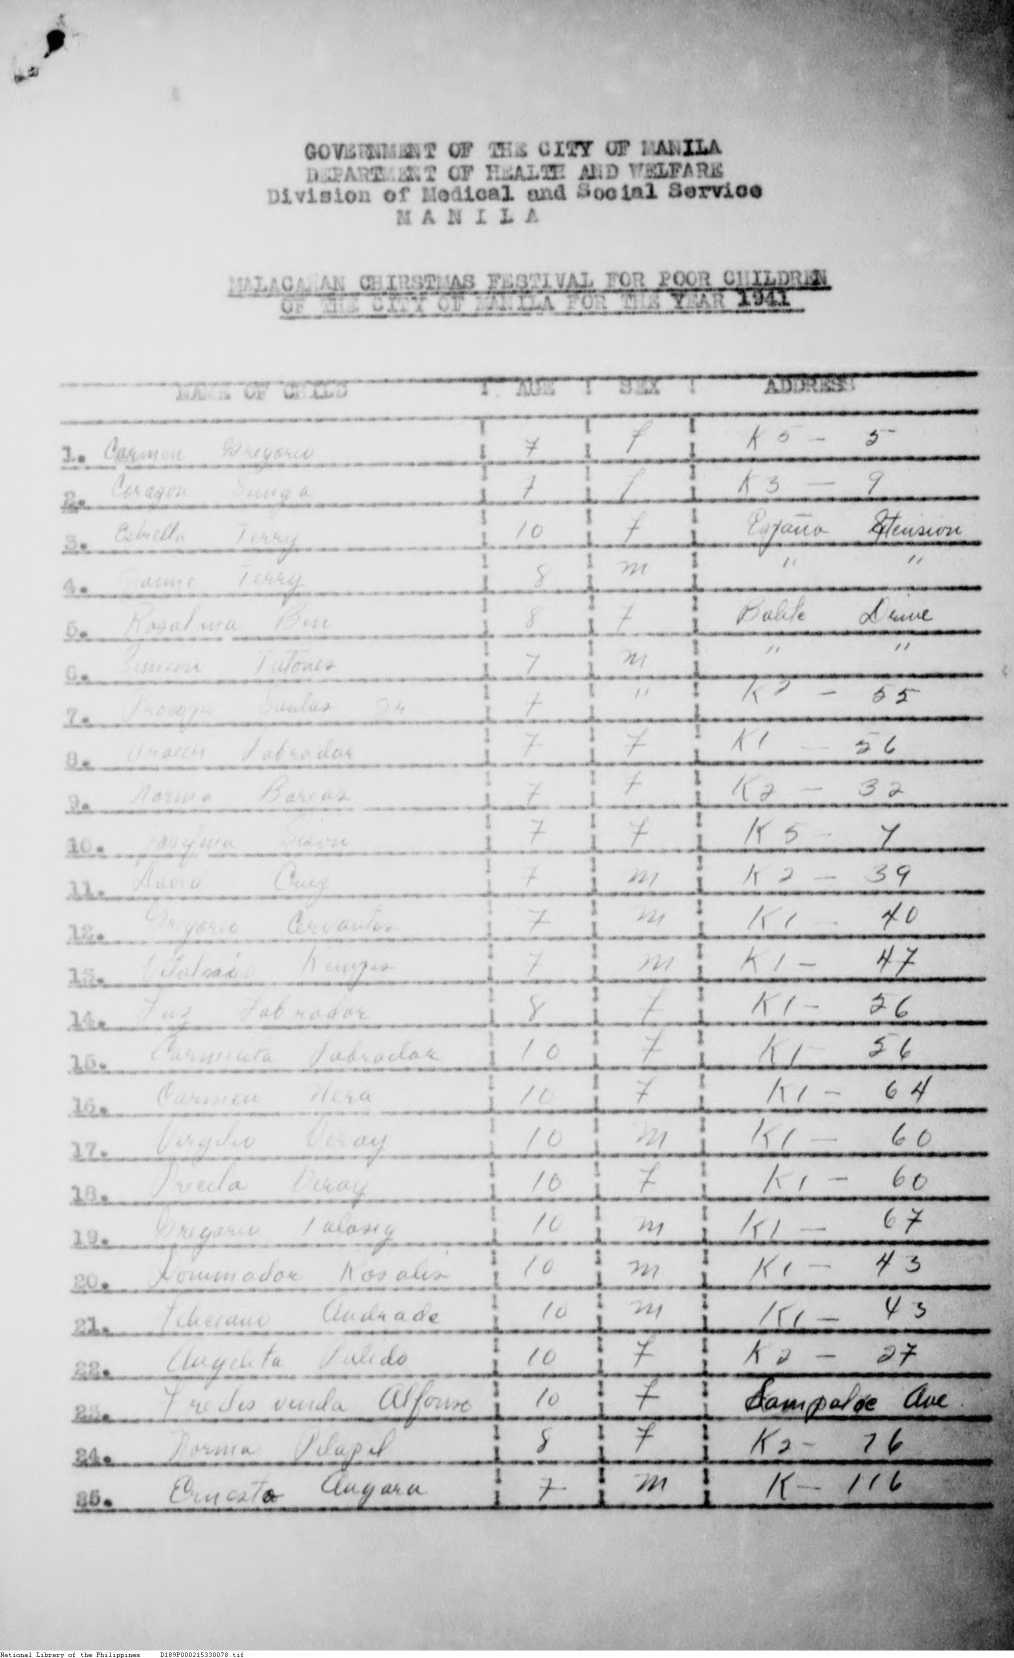 GOVERNMENT OF THE CITY OF MANILA
DEPARTMENT OF HEALTH AND WELFARE
Division of Medical and Social Service
M A N I L A
MALACAÑAN CHIRSTMAS FESTIVAL FOR POOR CHILDREN
OF THE CITY OF MANILA FOR THE YEAR 1941
NAME OF CHILD ! AGE ! SEX ! ADDRESS
1. Carmen Gregorio 7 f K 5 - 5
2. Corazon Sunga 7 f K 3 - 9
3. Estrella Terry 10 f España Xtension
4. Terry 8 m " "
5. Rosalina Bin 8 f Balite Drive
6. Simeon Tatones 7 m " "
7. Santos 7 " K 2 - 55
8. Labrador 7 f K1 - 56
9. Norma Borcas 7 f K2 - 32
10. Josefina 7 f K 5 - 7
11. Cruz 7 m K 2 - 39
12. Gregorio Cervantes 7 m K1 - 40
13. 7 m K1 - 47
14. Luz Labrador 8 f K1 - 56
15. Carmenita Labrador 10 f K1 - 56
16. Carmen Nera 10 f K1 - 64
17. Virgilio Viray 10 m K1 - 60
18. Precila Viray 10 f K1 - 60
19. Gregorio Talosig 10 m K1 - 67
20. Rommador Rosalis 10 m K1 - 43
21. Feliciano Andrade 10 m K1 - 43
22. Angelita Pulido 10 f K2 - 27
23. Fredisvinda Alfonso 10 f Sampaloc Ave.
24. Norma Pilapil 8 f K2 - 76
25. Ernesto Angara 7 m K - 116
National Library of the Philippines D189P000215330078.tif